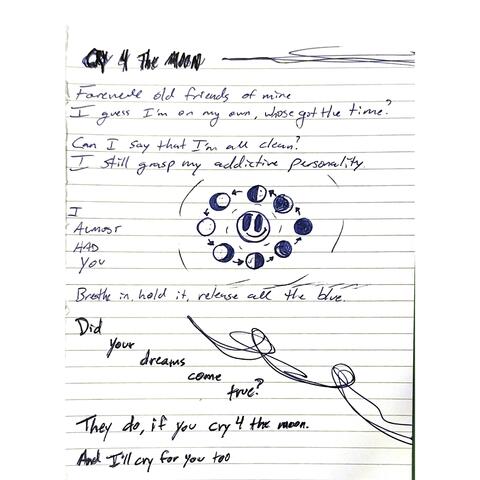 CRY 4 THE MOON
Farewell old friends of mine
I guess I'm on my own, whose got the time?
Can I say that I'm all clean?
I still grasp my addictive personality
I
ALMOST
HAD
YOU
Breathe in, hold it, release all the blue.
Did
your
dreams
come
true?
They do, if you cry 4 the moon.
And I'll cry for you too